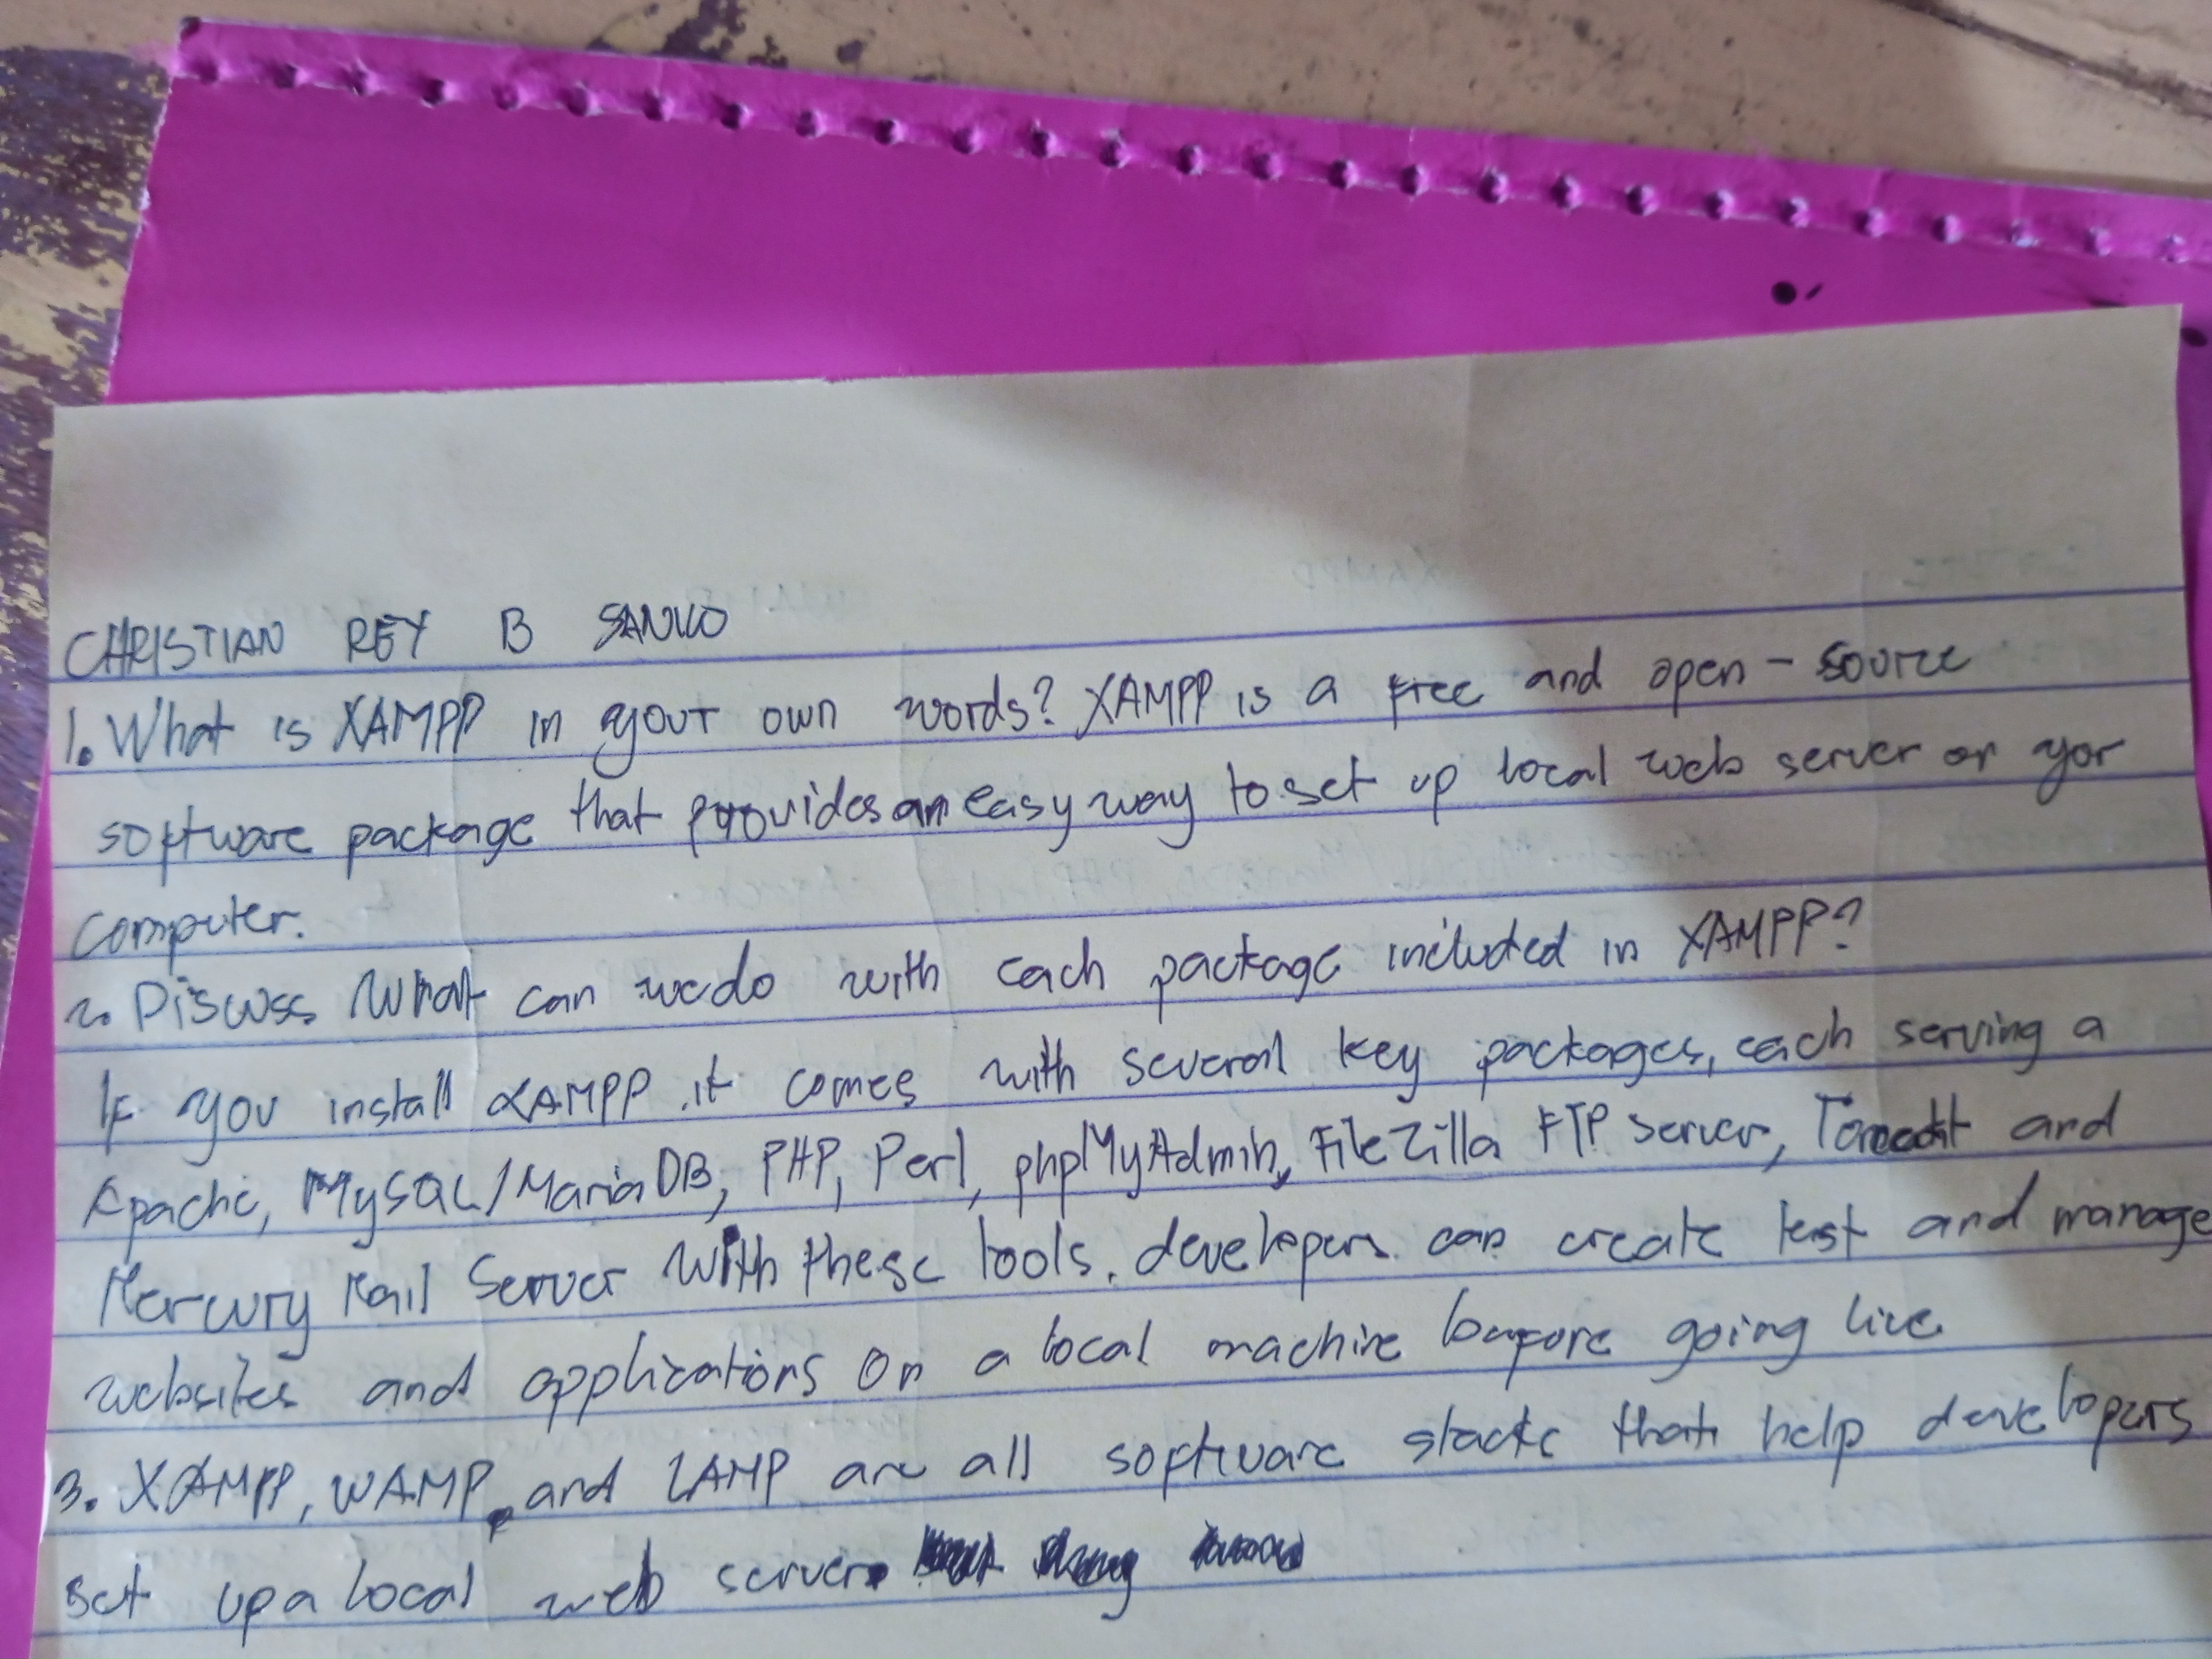 CHRISTIAN REY B SANKO
1. What is XAMPP in your own words? XAMPP is a free and open-source
software package that provides an easy way to set up local web server on yor
computer.
2. Discuss What can we do with each package included in XAMPP?
If you install XAMPP it comes with several key packages, each serving a
Apache, MySQL/MariaDB, PHP, Perl, phpMyAdmin, FileZilla FTP Server, and
Mercury Mail Server With these tools. developers can create test and manage
websites and applications on a local machine before going live
3. XAMPP, WAMP, and LAMP are all software stacks that help developers
set up a local web server.